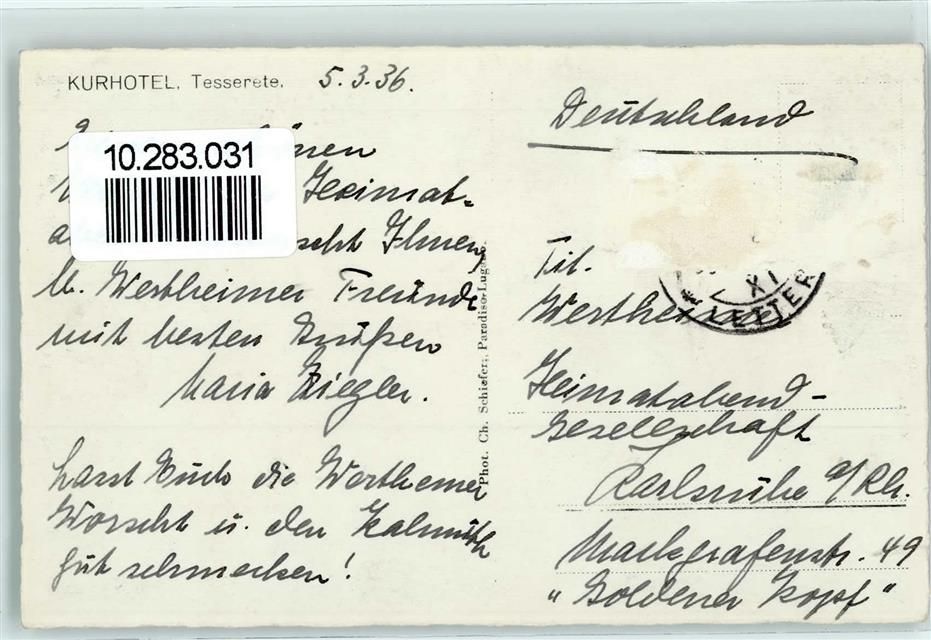 KURHOTEL, Tesserete.
5.3.36.
10.283.031
Heimat-
Ihnen
lb. Wertheimer Freunde
mit besten Grüßen
Maria Ziegler.
Lasst Euch die Wertheimer
Worscht u. den Kalmuth
gut schmecken!
Phot. Ch. Schiefer, Paradiso-Lugano.
Deutschland
XI
LETTER
Tit.
Wertheimer
Heimatabend-
Gesellschaft
Karlsruhe a/Rh.
Markgrafenstr. 49
"Goldener Kopf"